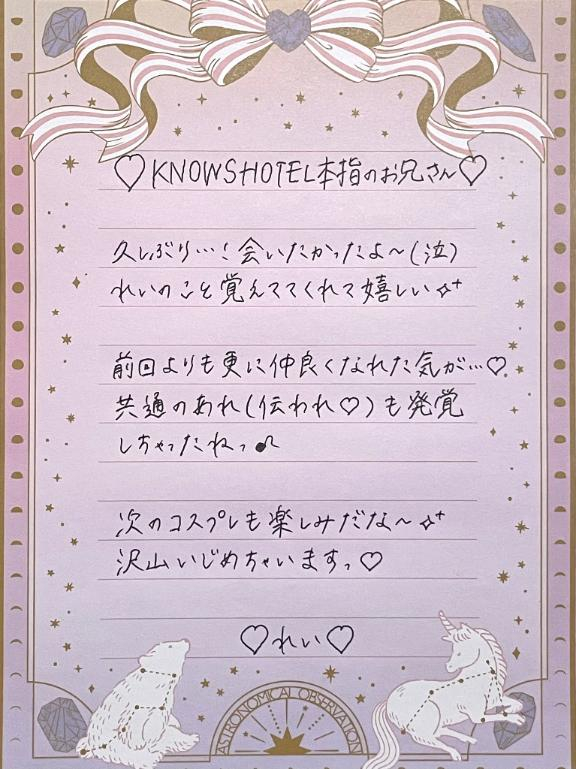 ♡KNOWSHOTEL本指のお兄さん♡
久しぶり…！会いたかったよ〜(泣)
れいのこと覚えててくれて嬉しい✧⁺
前回よりも更に仲良くなれた気が…♡
共通のあれ(伝われ♡)も発覚
しちゃったねっ♪
次のコスプレも楽しみだな〜✧⁺
沢山いじめちゃいますっ♡
♡れい♡
ASTRONOMICAL OBSERVATION